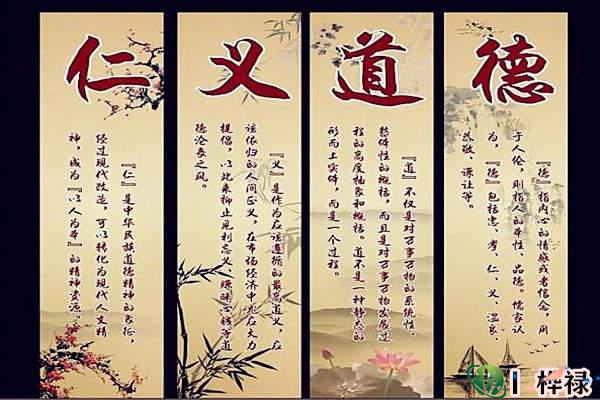 仁
『仁』是中华民族道德精神的象征，
经过现代改造，可以转化为现代人文精
神，成为『以人为本』的精神资源。
义
『义』是作为应该遵循的最高道义，应
该依归的人间正义，在市场经济中尤应大力
提倡，以此来抑止见利忘义、赚昧心钱等道
德沦丧之风。
道
『道』不仅是对万事万物的系统性、
整体性的概括，而且是对万事万物发展过
程的高度抽象和概括。道不是一种静态的
形而上实体，而是一个过程。
德
『德』指内心的情感或者信念，用
于人伦，则指人的本性、品德。儒家认
为，『德』包括忠、孝、仁、义、温良、
恭敬、谦让等。
梓禄